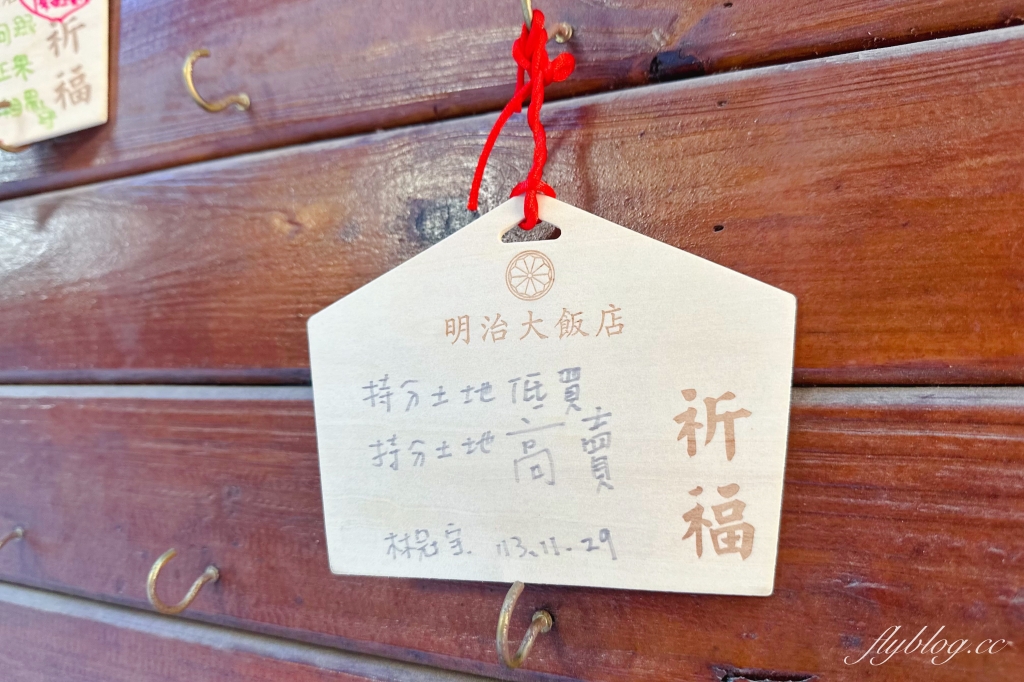 祈福
明治大飯店
持分土地低買
持分土地高賣
林冠宇 113.11.29
祈福
flyblog.cc